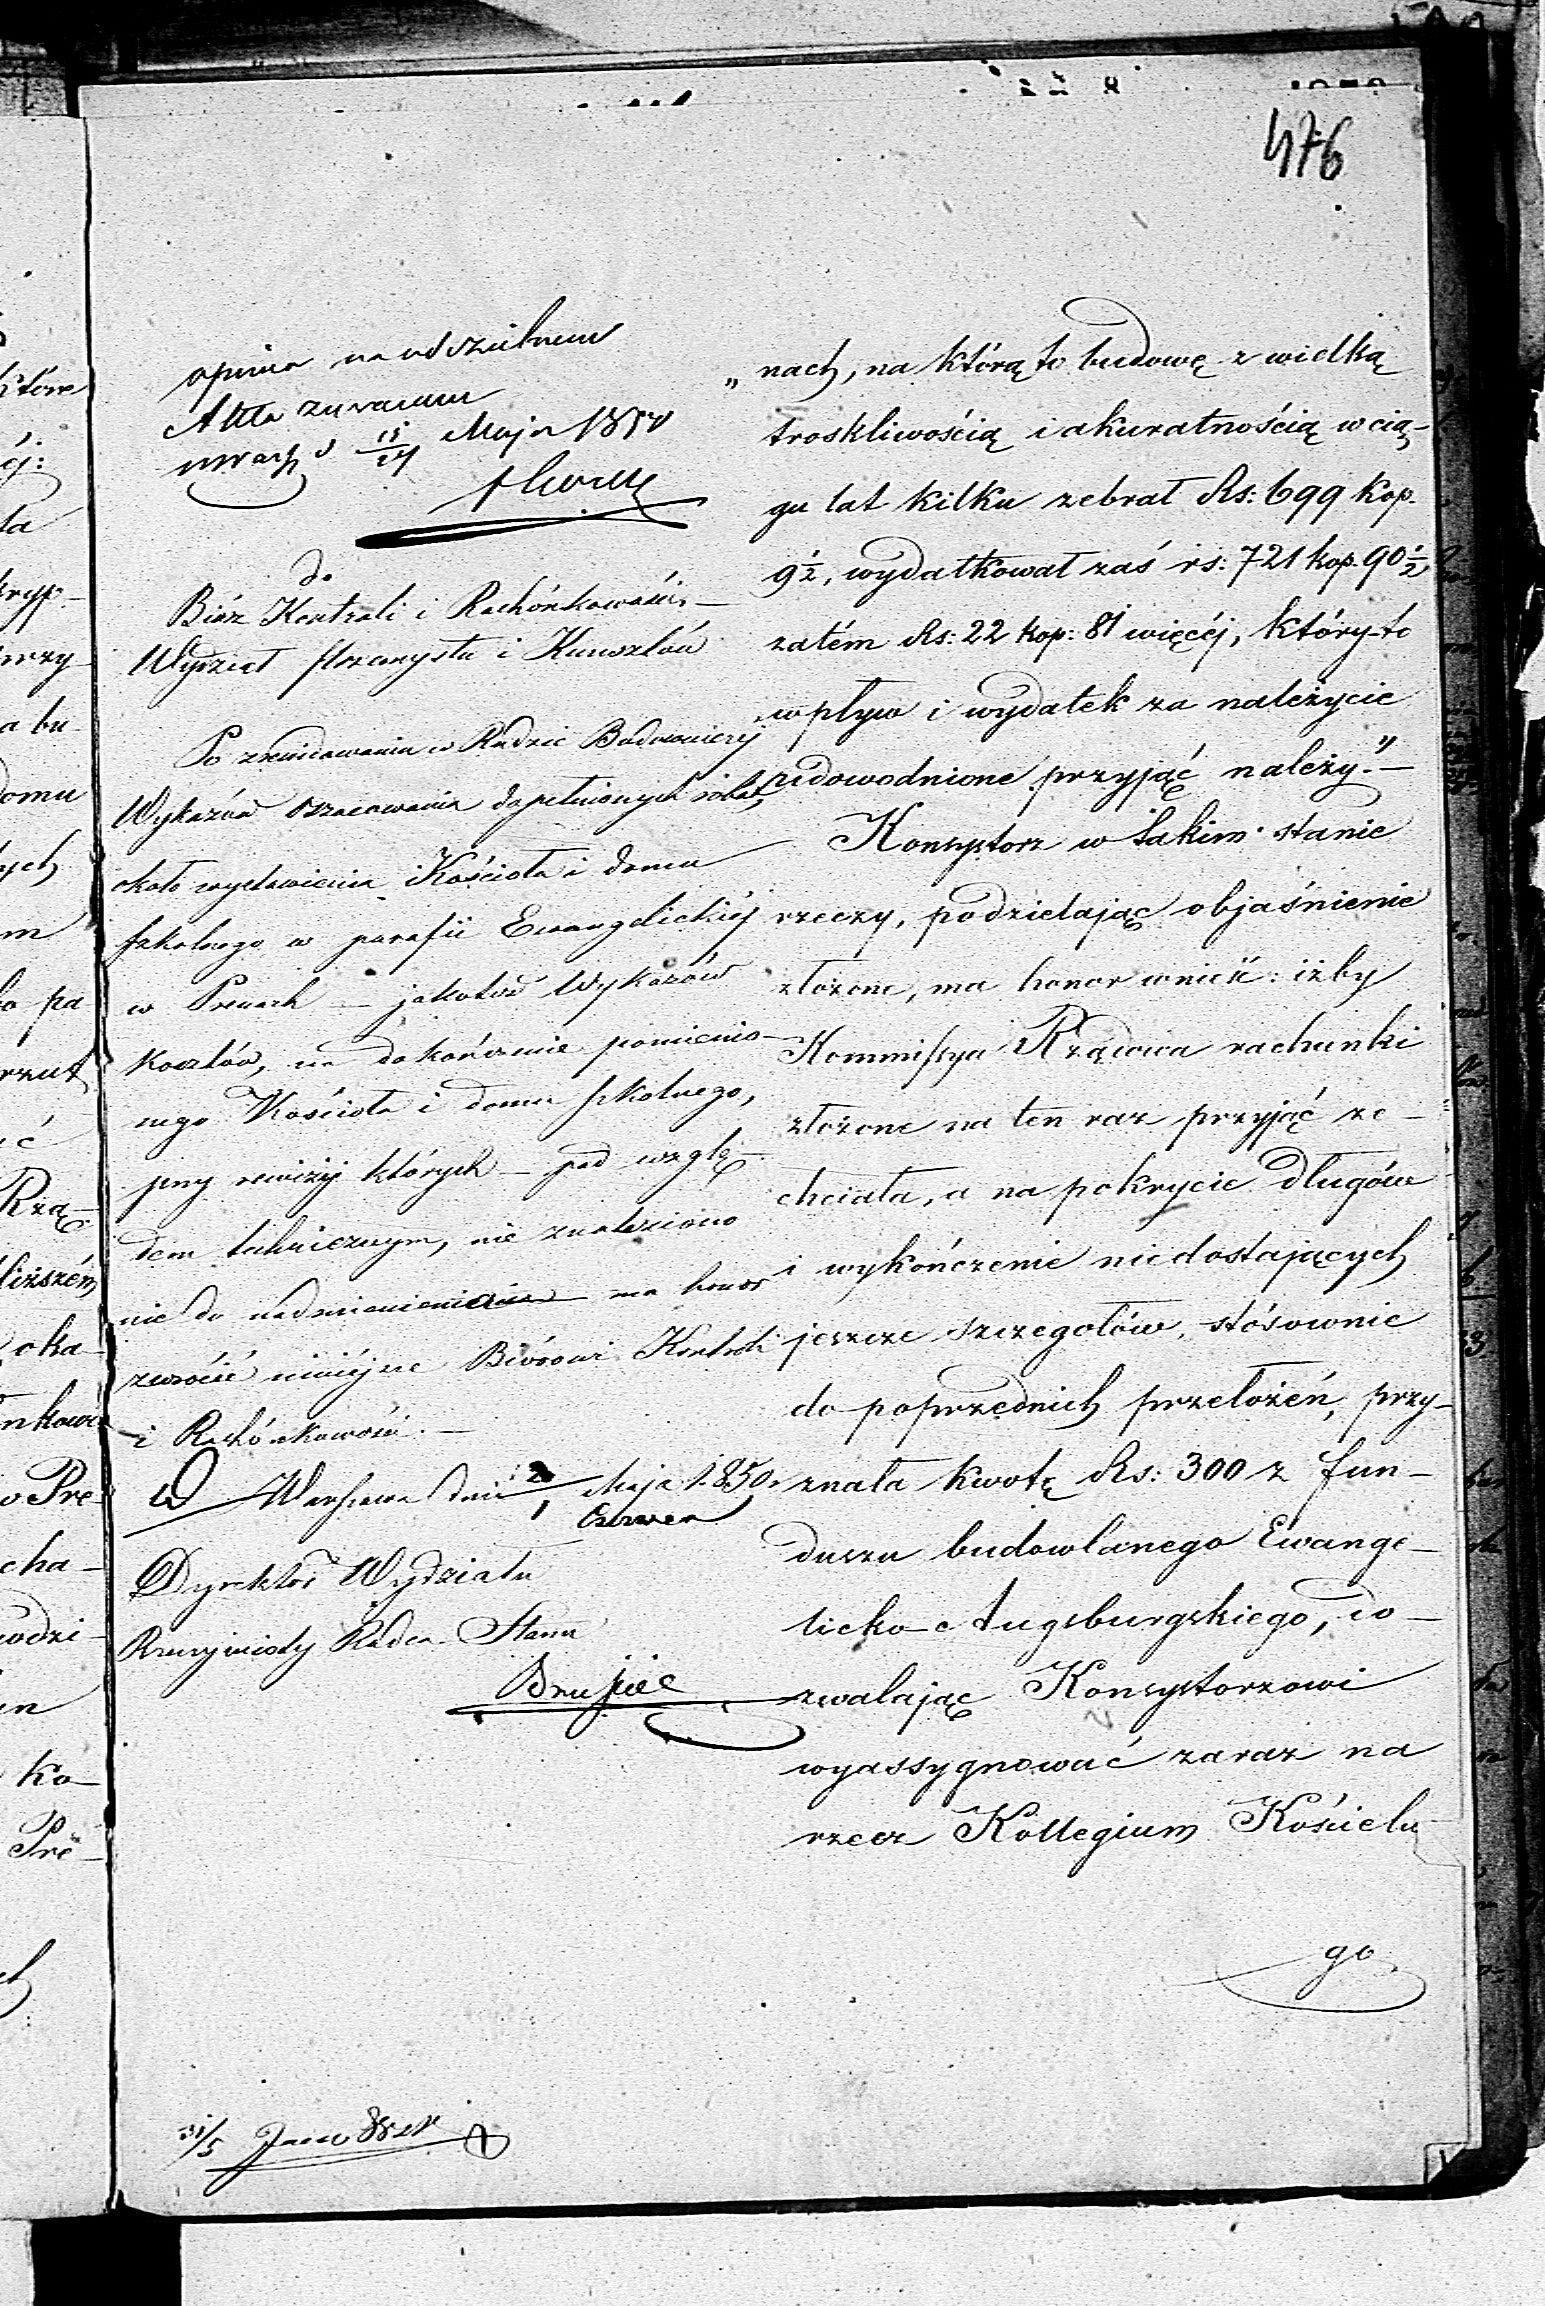 476
opinia na oddzielnem
Akta zwracam
15/27 Maja 1850
do
Biór Kontroli i Rachónkowości –
Wydział Przemysłu i Kunsztów
Po zrewidowaniu w Radzie Budowniczéj
Wykazów oszacowania dopełnionych robót,
około wystawienia Kościoła i domu
szkolnego w parafii Ewangelickiéj
w Prenach – jakoteż Wykazów
kosztów, na dokończenie pomienio-
nego Kościoła i domu szkolnego,
przy rewizyi których – pod wzglę-
dem technicznym, nie znaleziono
nic do nadmienienia ma honor
zwrócić niniéjsze Biórowi Kontroli
i Rachónkowości. –
w Warszawie dnia 20/1 Maja/Czerwca 1850.
Dyrektor Wydziału
Rzeczywisty Radca Stanu
31/5
„nach, na którą to budowę z wielką
troskliwością i akuratnością w cią-
gu lat kilku zebrał Rs: 699 kop.
9½, wydatkował zaś rs: 721 kop. 90½,
zatém Rs: 22 kop: 81 więcéj, który to
wpływ i wydatek za należycie
udowodnione przyjąć należy." –
Konsystorz w takim stanie
rzeczy, podzielając objaśnienie
złożone, ma honor wnieść: iżby
Kommissya Rządowa rachunki
złożone na ten raz przyjąć ze-
chciała, a na pokrycie długów
i wykończenie niedostających
jeszcze szczegółów, stósownie
do poprzednich przełożeń, przy-
znała kwotę Rs: 300 z fun-
duszu budowlanego Ewange-
licko-Augsburgskiego, do-
zwalając Konsystorzowi
wyassygnować zaraz na
rzecz Kollegium Kościeln
go